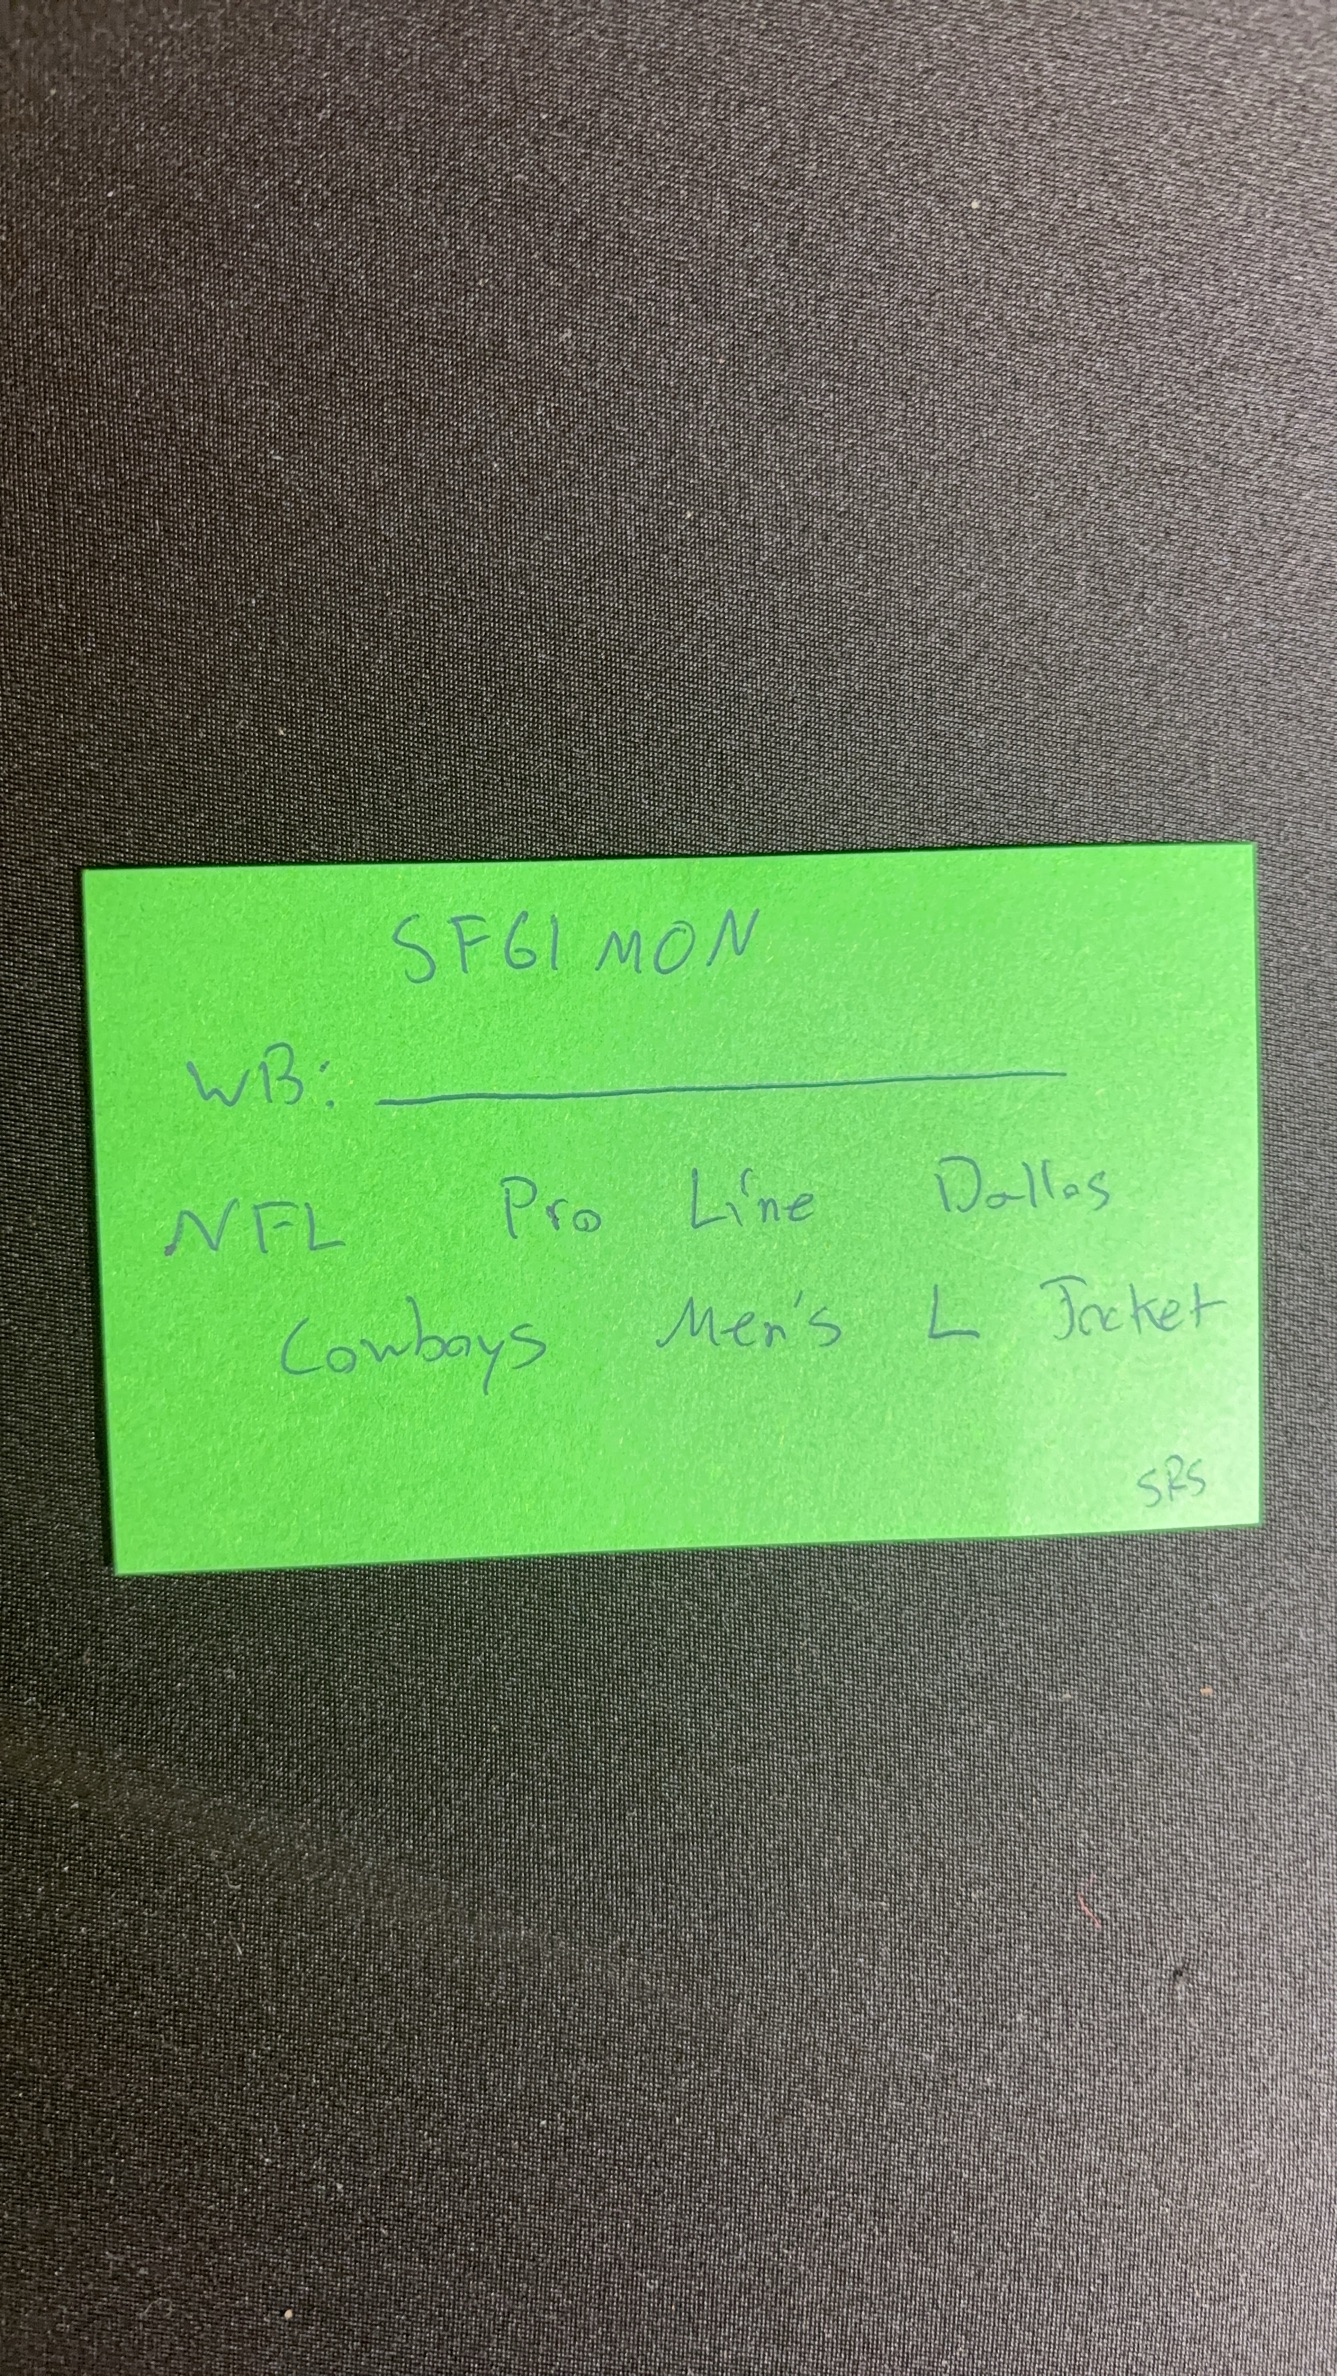 SFGI MON
WB: ____________
NFL Pro Line Dallas
Cowboys Men's L Jacket
SRS